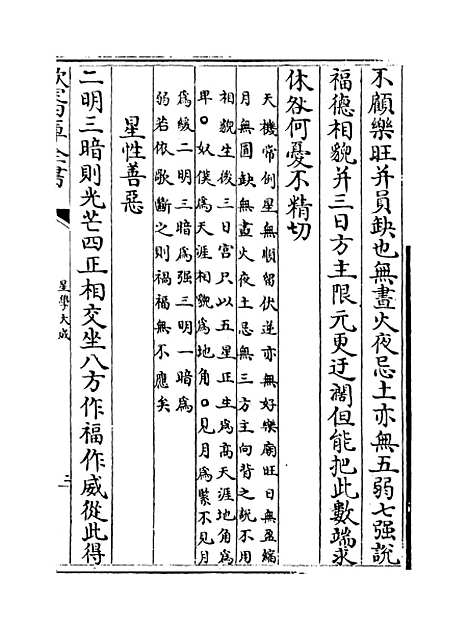 不顧樂旺并員缺也無晝火夜忌土亦無五弱七强說
福德相貌并三日方主限元更迂濶但能把此數端求
休咎何憂不精切
天機常例星無順留伏逆亦無好樂廟旺日無盈縮
月無圓缺無晝火夜土忌無三方主向背之說不用
相貌生後三日宫只以五星正生爲高天涯地角爲
卑○奴僕爲天涯相貌爲地角○見月爲緊不見月
爲緩二明一暗爲强三明一暗爲
弱若依歌斷之則禍福無不應矣
星性善惡
二明三暗則光芒四正相交坐八方作福作威從此得
欽定四庫全書
星學大成
三